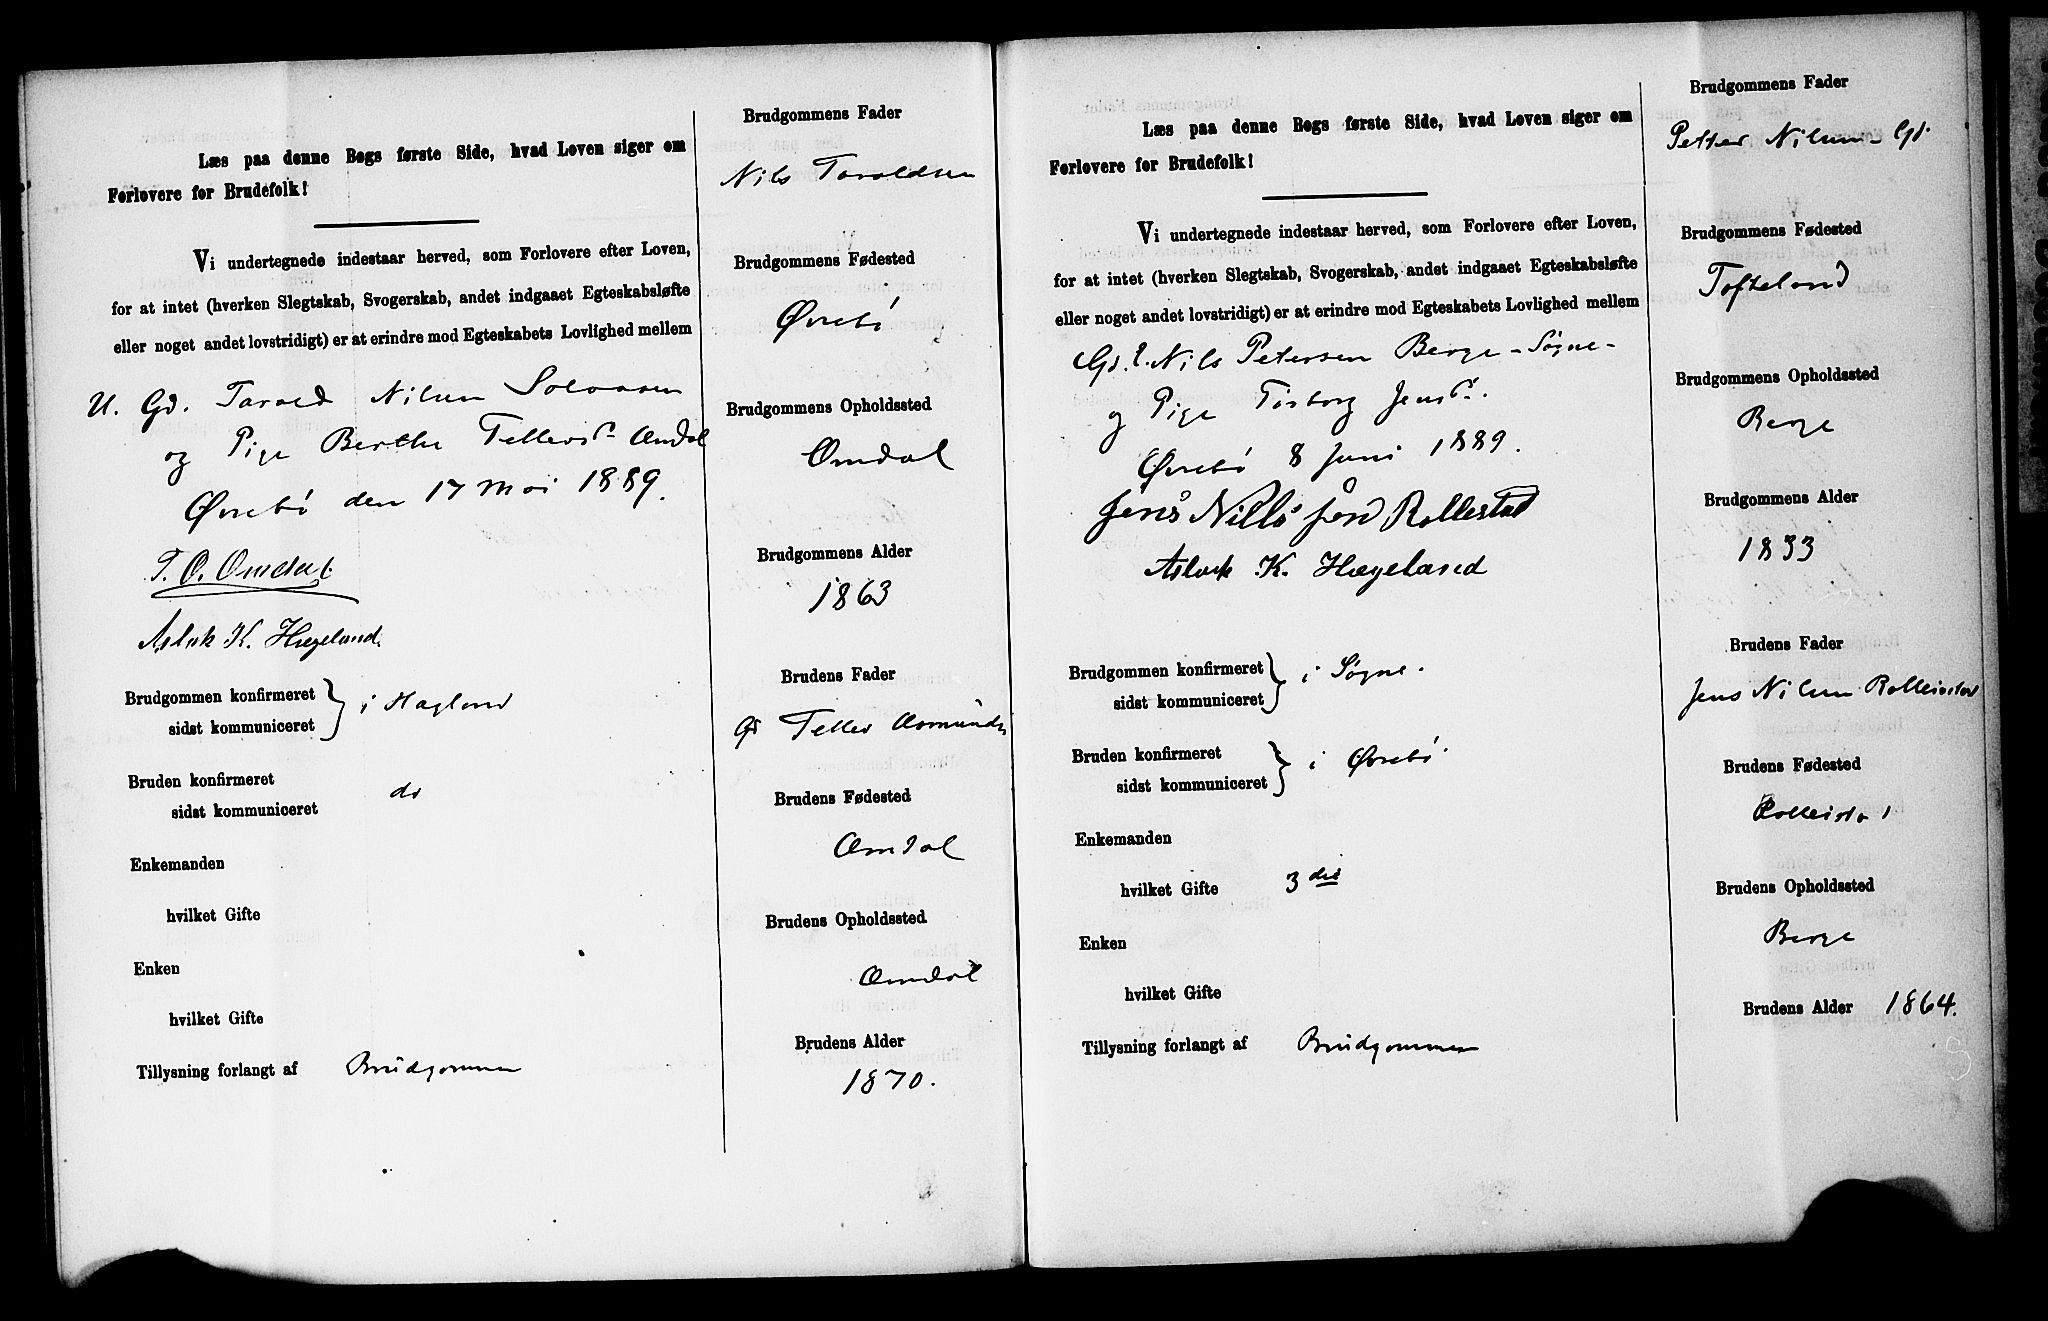 Læs paa denne Bogs første Side, hvad Loven siger om
Forlovere for Brudefolk!
Vi undertegnede indestaar herved, som Forlovere efter Loven,
for at intet (hverken Slegtskab, Svogerskab, andet indgaaet Egteskabsløfte
eller noget andet lovstridigt) er at erindre mod Egteskabets Lovlighed mellem
U. Gd. Tarald Nilsen
og Pige Berthe Tellefsd. Omdal
Øvrebø den 17 Mai 1889.
T. O. Omdal.
Aslak K. Hægeland.
Brudgommen konfirmeret
sidst kommuniceret } i Hægland
Bruden konfirmeret
sidst kommuniceret do
Enkemanden
hvilket Gifte
Enken
hvilket Gifte
Tillysning forlangt af Brudgommen
Brudgommens Fader
Nils Taraldsen
Brudgommens Fødested
Øvrebø
Brudgommens Opholdssted
Omdal
Brudgommens Alder
1863
Brudens Fader
Gd Tellef Asmunds
Brudens Fødested
Omdal
Brudens Opholdssted
Omdal
Brudens Alder
1870.
Læs paa denne Bogs første Side, hvad Loven siger om
Forlovere for Brudefolk!
Vi undertegnede indestaar herved, som Forlovere efter Loven,
for at intet (hverken Slegtskab, Svogerskab, andet indgaaet Egteskabsløfte
eller noget andet lovstridigt) er at erindre mod Egteskabets Lovlighed mellem
Gd. E. Nils Petersen Berge - Søgne -
og Pige Torborg Jensd.
Øvrebø 8 Juni 1889.
Jens Nills søn Rollestad
Aslack K. Hægeland
Brudgommen konfirmeret
sidst kommuniceret } i Søgne.
Bruden konfirmeret
sidst kommuniceret } i Øvrebø.
Enkemanden
hvilket Gifte 3die
Enken
hvilket Gifte
Tillysning forlangt af Brudgommen
Brudgommens Fader
Petter Nilsen - Gd.
Brudgommens Fødested
Tofteland
Brudgommens Opholdssted
Berge
Brudgommens Alder
1833
Brudens Fader
Jens Nilsen Rolleistad
Brudens Fødested
Rolleistad
Brudens Opholdssted
Berge
Brudens Alder 1864.